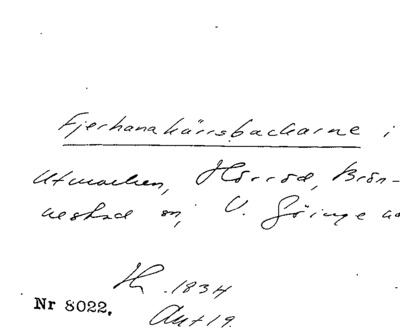 Fjerhanakärrsbackarne i
Utmarken, Hörröd, Brön-
nestad sn, V. Göinge
1834
Nr 8022. Akt 19.